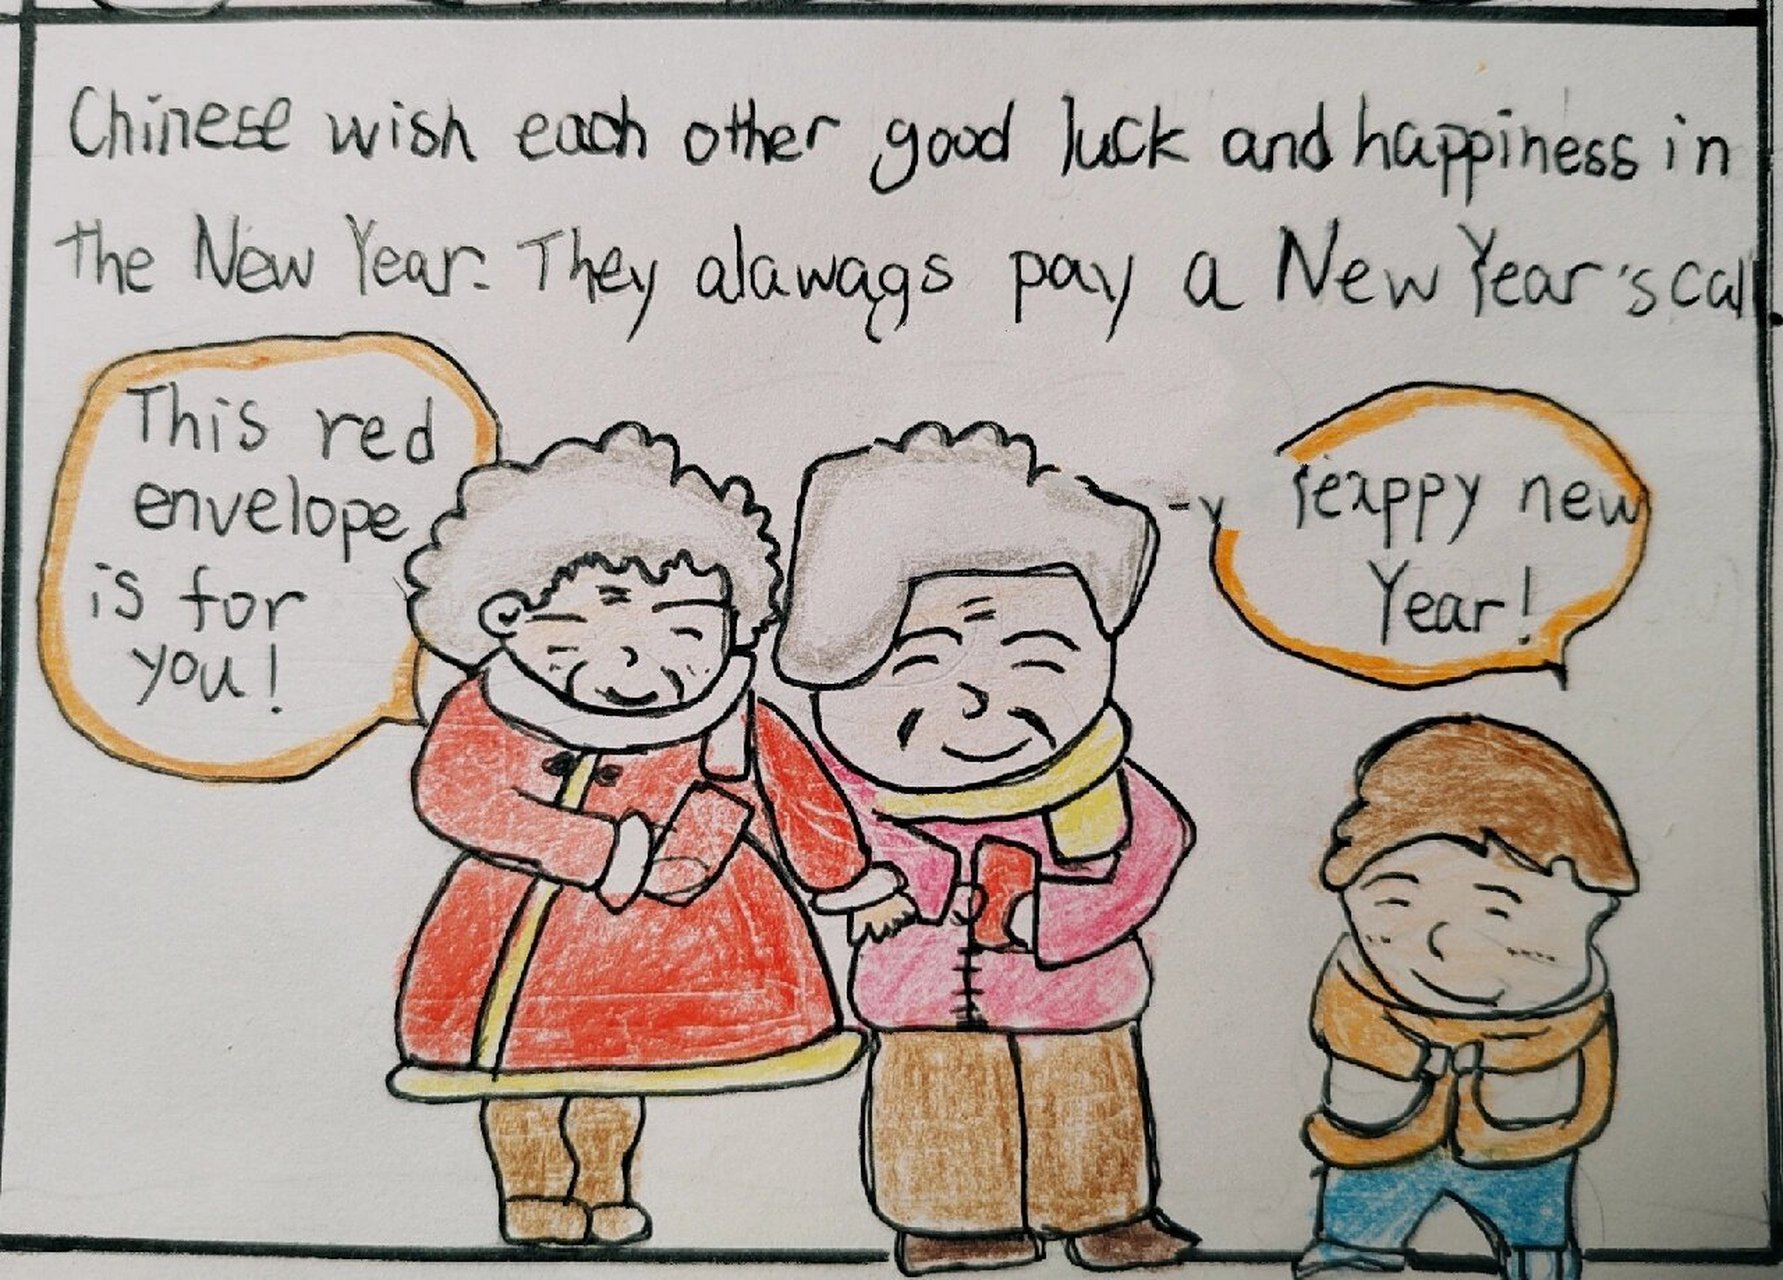 Chinese wish each other good luck and happiness in
the New Year. They alawags pay a New Year's call
This red
envelope
is for
you!
new
Year!